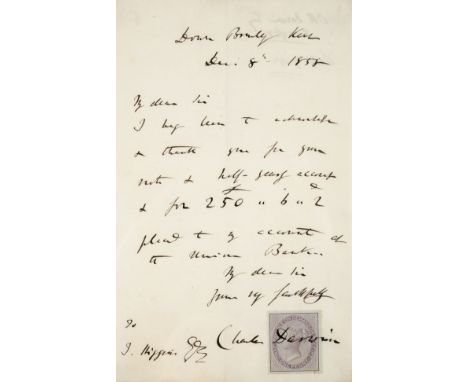 Down Bromley Kent
Dec. 8th 1858
My dear Sir
I beg leave to acknowledge
& thank you for your
note & half-year's account
& for £250 " 6 " 2
placed to my account at
the Union Bank.
My dear Sir
Yours very faithfully
Charles Darwin
To
J. Higgins Esq